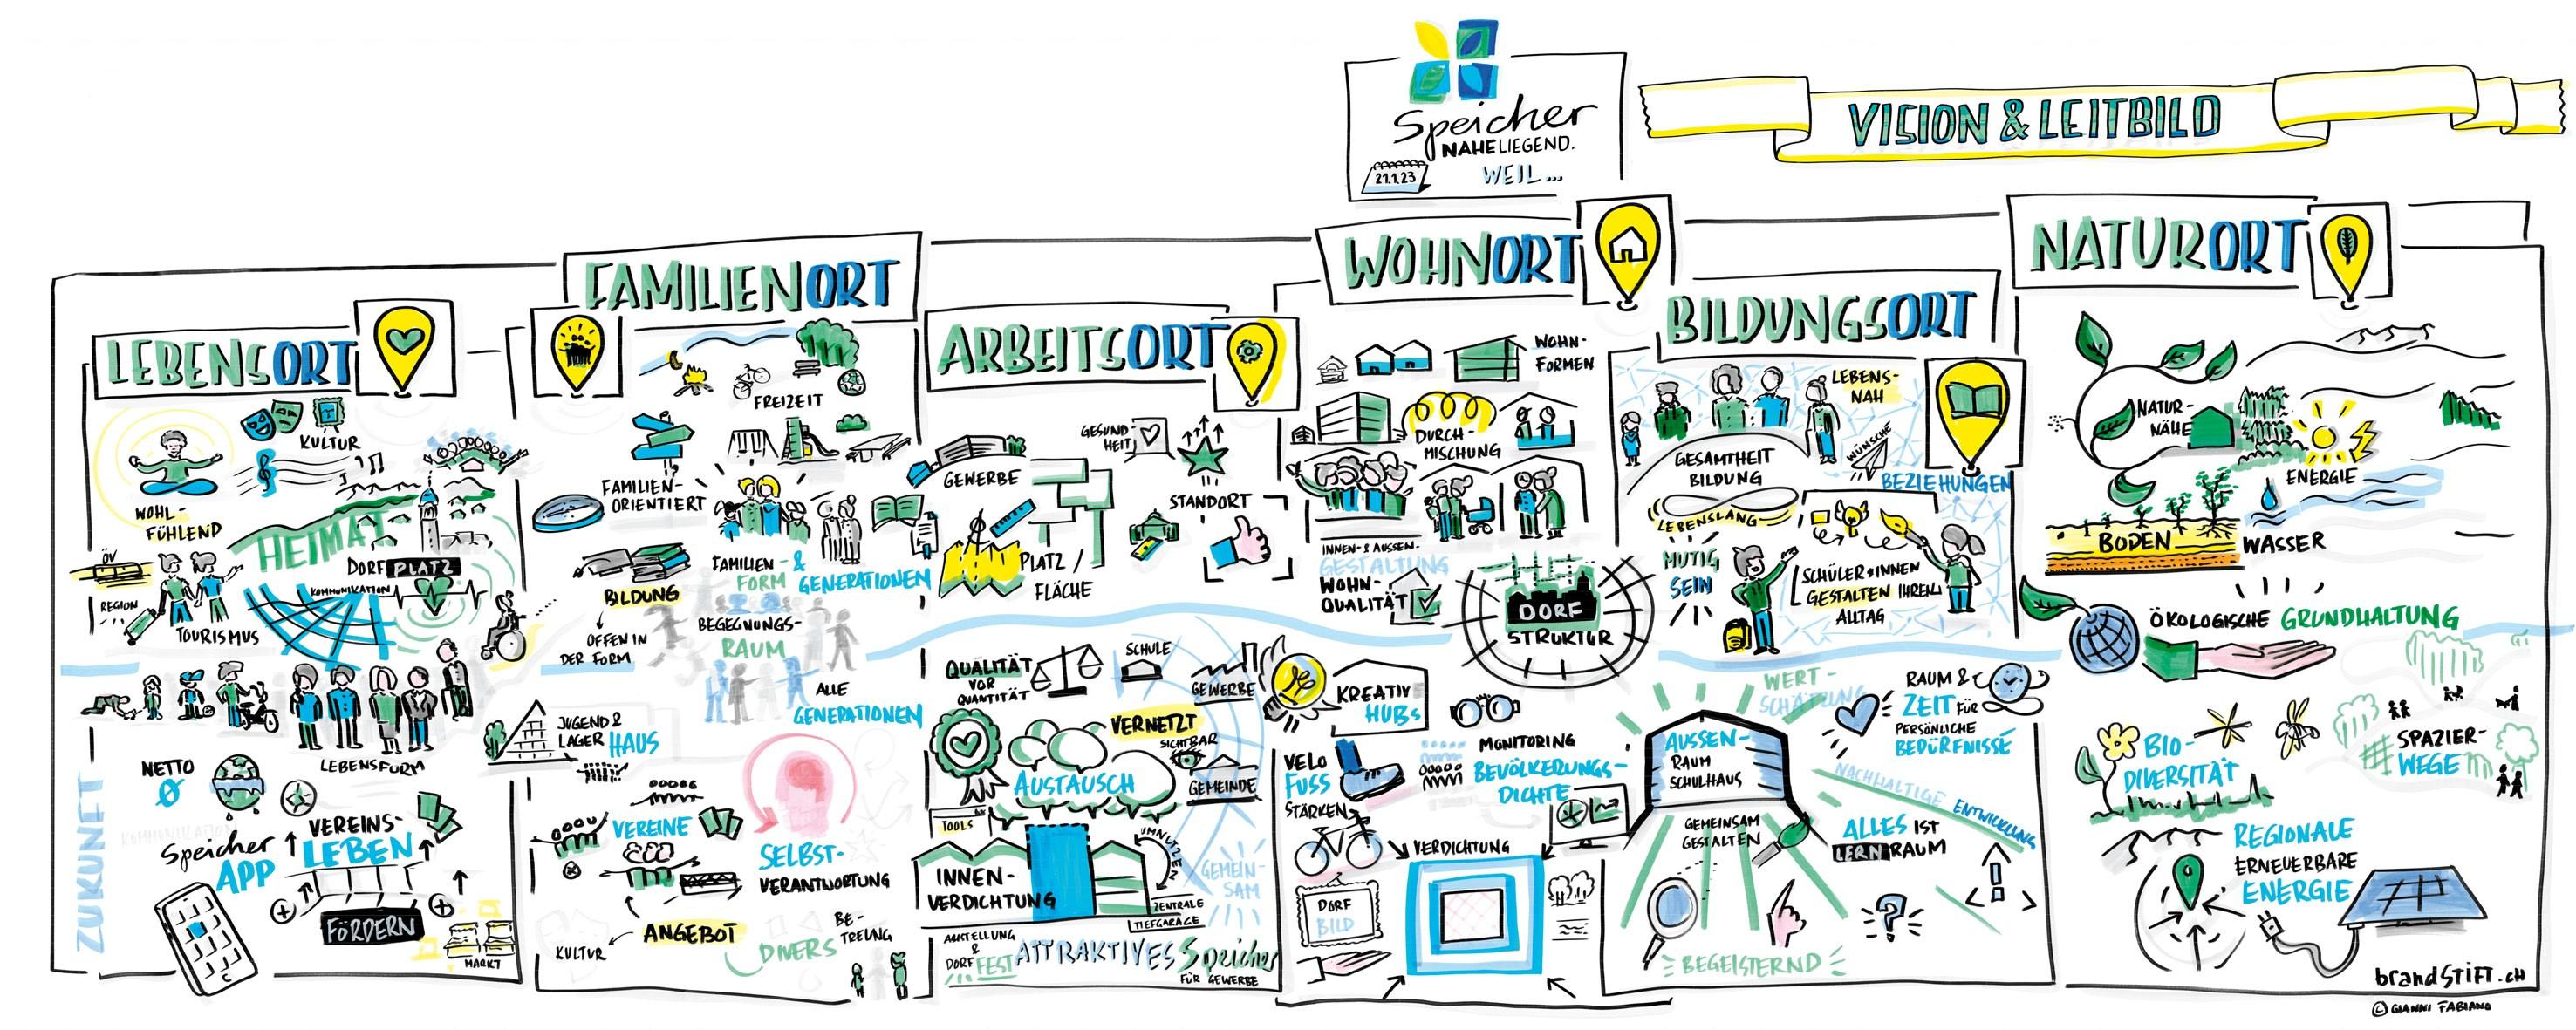 Speicher
NAHELIEGEND.
21.1.23
WEIL...
VISION & LEITBILD
LEBENSORT
KULTUR
WOHL-
FÜHLEND
HEIMAT
ÖV
REGION
TOURISMUS
DORFPLATZ
KOMMUNIKATION
LEBENSFORM
ZUKUNFT
NETTO
0
KOMMUNIKATION
Speicher
APP
VEREINS-
LEBEN
FÖRDERN
MARKT
FAMILIENORT
FREIZEIT
FAMILIEN-
ORIENTIERT
BILDUNG
OFFEN IN
DER FORM
FAMILIEN-
FORM
& GENERATIONEN
BEGEGNUNGS-
RAUM
ALLE
GENERATIONEN
JUGEND &
LAGER HAUS
VEREINE
SELBST-
VERANTWORTUNG
ANGEBOT
KULTUR
DIVERS
BE-
TREUNG
ARBEITSORT
GESUND
HEIT
GEWERBE
STANDORT
PLATZ /
FLÄCHE
QUALITÄT
VOR
QUANTITÄT
SCHULE
GEWERBE
VERNETZT
SICHTBAR
AUSTAUSCH
GEMEINDE
TOOLS
UMNUTZEN
INNEN-
VERDICHTUNG
ZENTRALE
TIEFGARAGE
GEMEIN-
SAM
AUSTELLUNG
&
DORF
FEST
ATTRAKTIVES Speicher
FÜR GEWERBE
WOHNORT
WOHN-
FORMEN
DURCH-
MISCHUNG
INNEN- & AUSSEN-
GESTALTUNG
WOHN-
QUALITÄT
DORF
STRUKTUR
KREATIV
HUBs
VELO
FUSS
STÄRKEN
MONITORING
BEVÖLKERUNGS-
DICHTE
VERDICHTUNG
DORF
BILD
BILDUNGSORT
LEBENS-
NAH
WÜNSCHE
GESAMTHEIT
BILDUNG
BEZIEHUNGEN
LEBENSLANG
MUTIG
SEIN
SCHÜLER*INNEN
GESTALTEN IHREN
ALLTAG
WERT-
SCHÄTZUNG
RAUM &
ZEIT FÜR
PERSÖNLICHE
BEDÜRFNISSE
AUSSEN-
RAUM
SCHULHAUS
NACHHALTIGE ENTWICKLUNG
GEMEINSAM
GESTALTEN
ALLES IST
LERNRAUM
BEGEISTERND
NATURORT
NATUR-
NÄHE
ENERGIE
BODEN
WASSER
ÖKOLOGISCHE GRUNDHALTUNG
BIO-
DIVERSITÄT
SPAZIER-
WEGE
REGIONALE
ERNEUERBARE
ENERGIE
brandSTIFT.CH
© GIANNI FABIANO